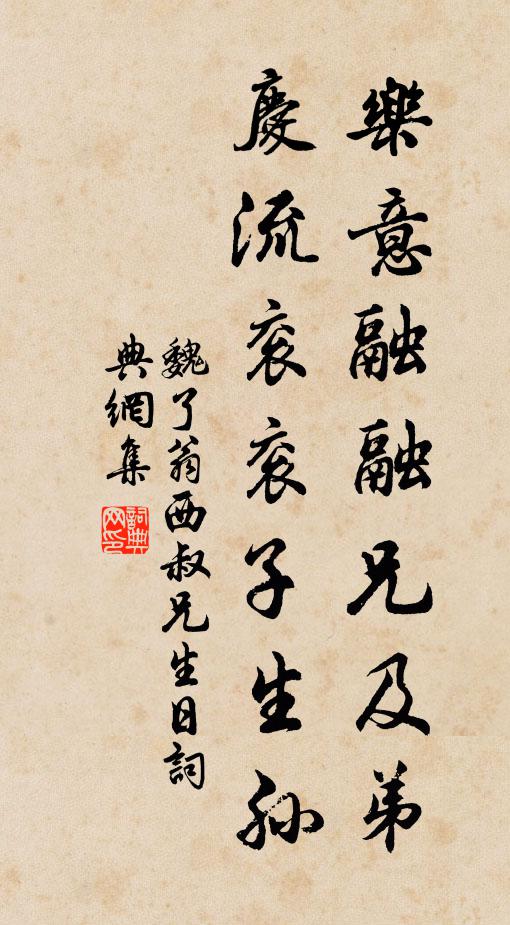 樂意融融兄及弟
慶流衮衮子生孫
魏了翁西叔兄生日詞
典網集
詞典網印